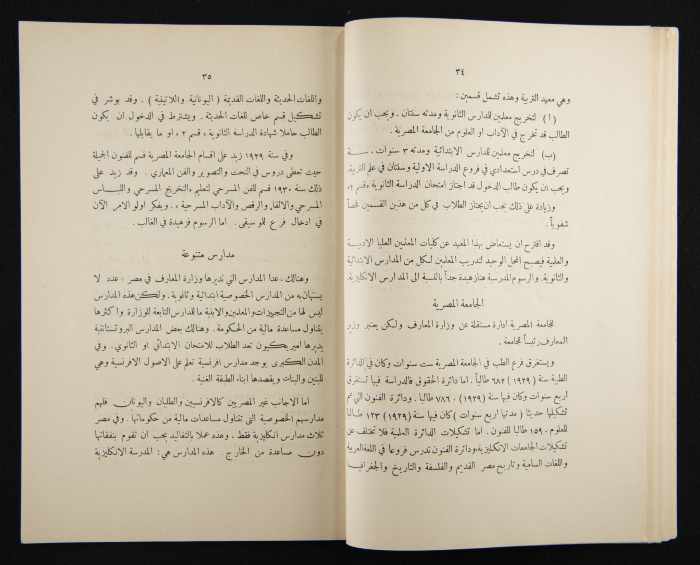 ٣٤
وهي معهد التربية وهذه تشمل قسمين :
( ا ) لتخريج معلمين للمدارس الثانوية ومدته سنتان . ويجب ان يكون
الطالب قد تخرج في الآداب او العلوم من الجامعة المصرية .
( ب ) لتخريج معلمين للمدارس الابتدائية ومدته ٣ سنوات . سنة
تصرف في درس استعدادي في فروع الدراسة الاولية وسنتان في علم التربية.
ويجب ان يكون طالب الدخول قد اجتاز امتحان الدراسة الثانوية « قسم ٢ »
وزيادة على ذلك يجب ان يجتاز الطلاب في كل من هذين القسمين فحصاً
شفوياً .
وقد اقترح ان يستعاض بهذا المعهد عن كليات المعلمين العليا الادبية
والعلمية فيصبح المحل الوحيد لتدريب المعلمين لكل من المدارس الابتدائية
والثانوية. والرسوم المدرسية هنا زهيدة جداً بالنسبة الى المدارس الانكليزية.
الجامعة المصرية
للجامعة المصرية ادارة مستقلة عن وزارة المعارف ولكن يعتبر وزير
المعارف رئيساً للجامعة .
ويستغرق فرع الطب في الجامعة المصرية ست سنوات وكان في الدائرة
الطبية سنة ( ١٩٢٩ ) ٦٨٢ طالباً . اما دائرة الحقوق فالدراسة فيها تستغرق
اربع سنوات وكان فيها سنة (١٩٢٩) ٧٨٦٠ طالباً . ودائرة الفنون التي تم
تشكيلها حديثا ( مدتها اربع سنوات ) كان فيها سنة (١٩٢٩) ١٢٣ طالبا
للعلوم ، ١٥٩ طالبا للفنون . اما تشكيلات الدائرة العلمية فلا تختلف عن
تشكيلات الجامعات الانكليزية، ودائرة الفنون تدرس فروعا في اللغة العربية
واللغات السامية وتاريخ مصر القديم والفلسفة والتاريخ والجغرافيا
٣٥
واللغات الحديثة واللغات القديمة ( اليونانية واللاتينية ) . وقد بوشر في
تشكيل قسم خاص للغات الحديثة . ويشترط في الدخول ان يكون
الطالب حاملا شهادة الدراسة الثانوية « قسم ٢ » او ما يقابلها .
وفي سنة ١٩٢٩ زيد على اقسام الجامعة المصرية قسم للفنون الجميلة
حيث تعطى دروس في النحت والتصوير والفن المعماري . وقد زيد على
ذلك سنة ١٩٣٠ قسم للفن المسرحي لتعليم « التخريج المسرحي واللباس
المسرحي والالقاء والرقص والآداب المسرحية » . ويفكر اولو الامر الآن
في ادخال فرع للموسيقى . اما الرسوم فزهيدة في الغالب .
مدارس متنوعة
وهنالك ، عدا المدارس التي تديرها وزارة المعارف في مصر ، عدد لا
يستهان به من المدارس الخصوصية ابتدائية وثانوية . ولكن هذه المدارس
ليس لها من التجهيزات والمعلمين والابنية ما للمدارس التابعة للوزارة واكثرها
يتناول مساعدة مالية من الحكومة . وهنالك بعض المدارس البروتستانتية
يديرها اميريكيون تعد الطلاب للامتحان الابتدائي او الثانوي . وفي
المدن الكبرى يوجد مدارس افرنسية تعلم على الاصول الافرنسية وهي
للبنين والبنات ويقصدها ابناء الطبقة الغنية .
اما الاجانب غير المصريين كالافرنسيين والطليان واليونان فلهم
مدارسهم الخصوصية التي تتناول مساعدات مالية من حكوماتها . وفي مصر
ثلاث مدارس انكليزية فقط ، وهذه عملا بالتقاليد يجب ان تقوم بنفقاتها
دون مساعدة من الخارج . هذه المدارس هي : المدرسة الانكليزية